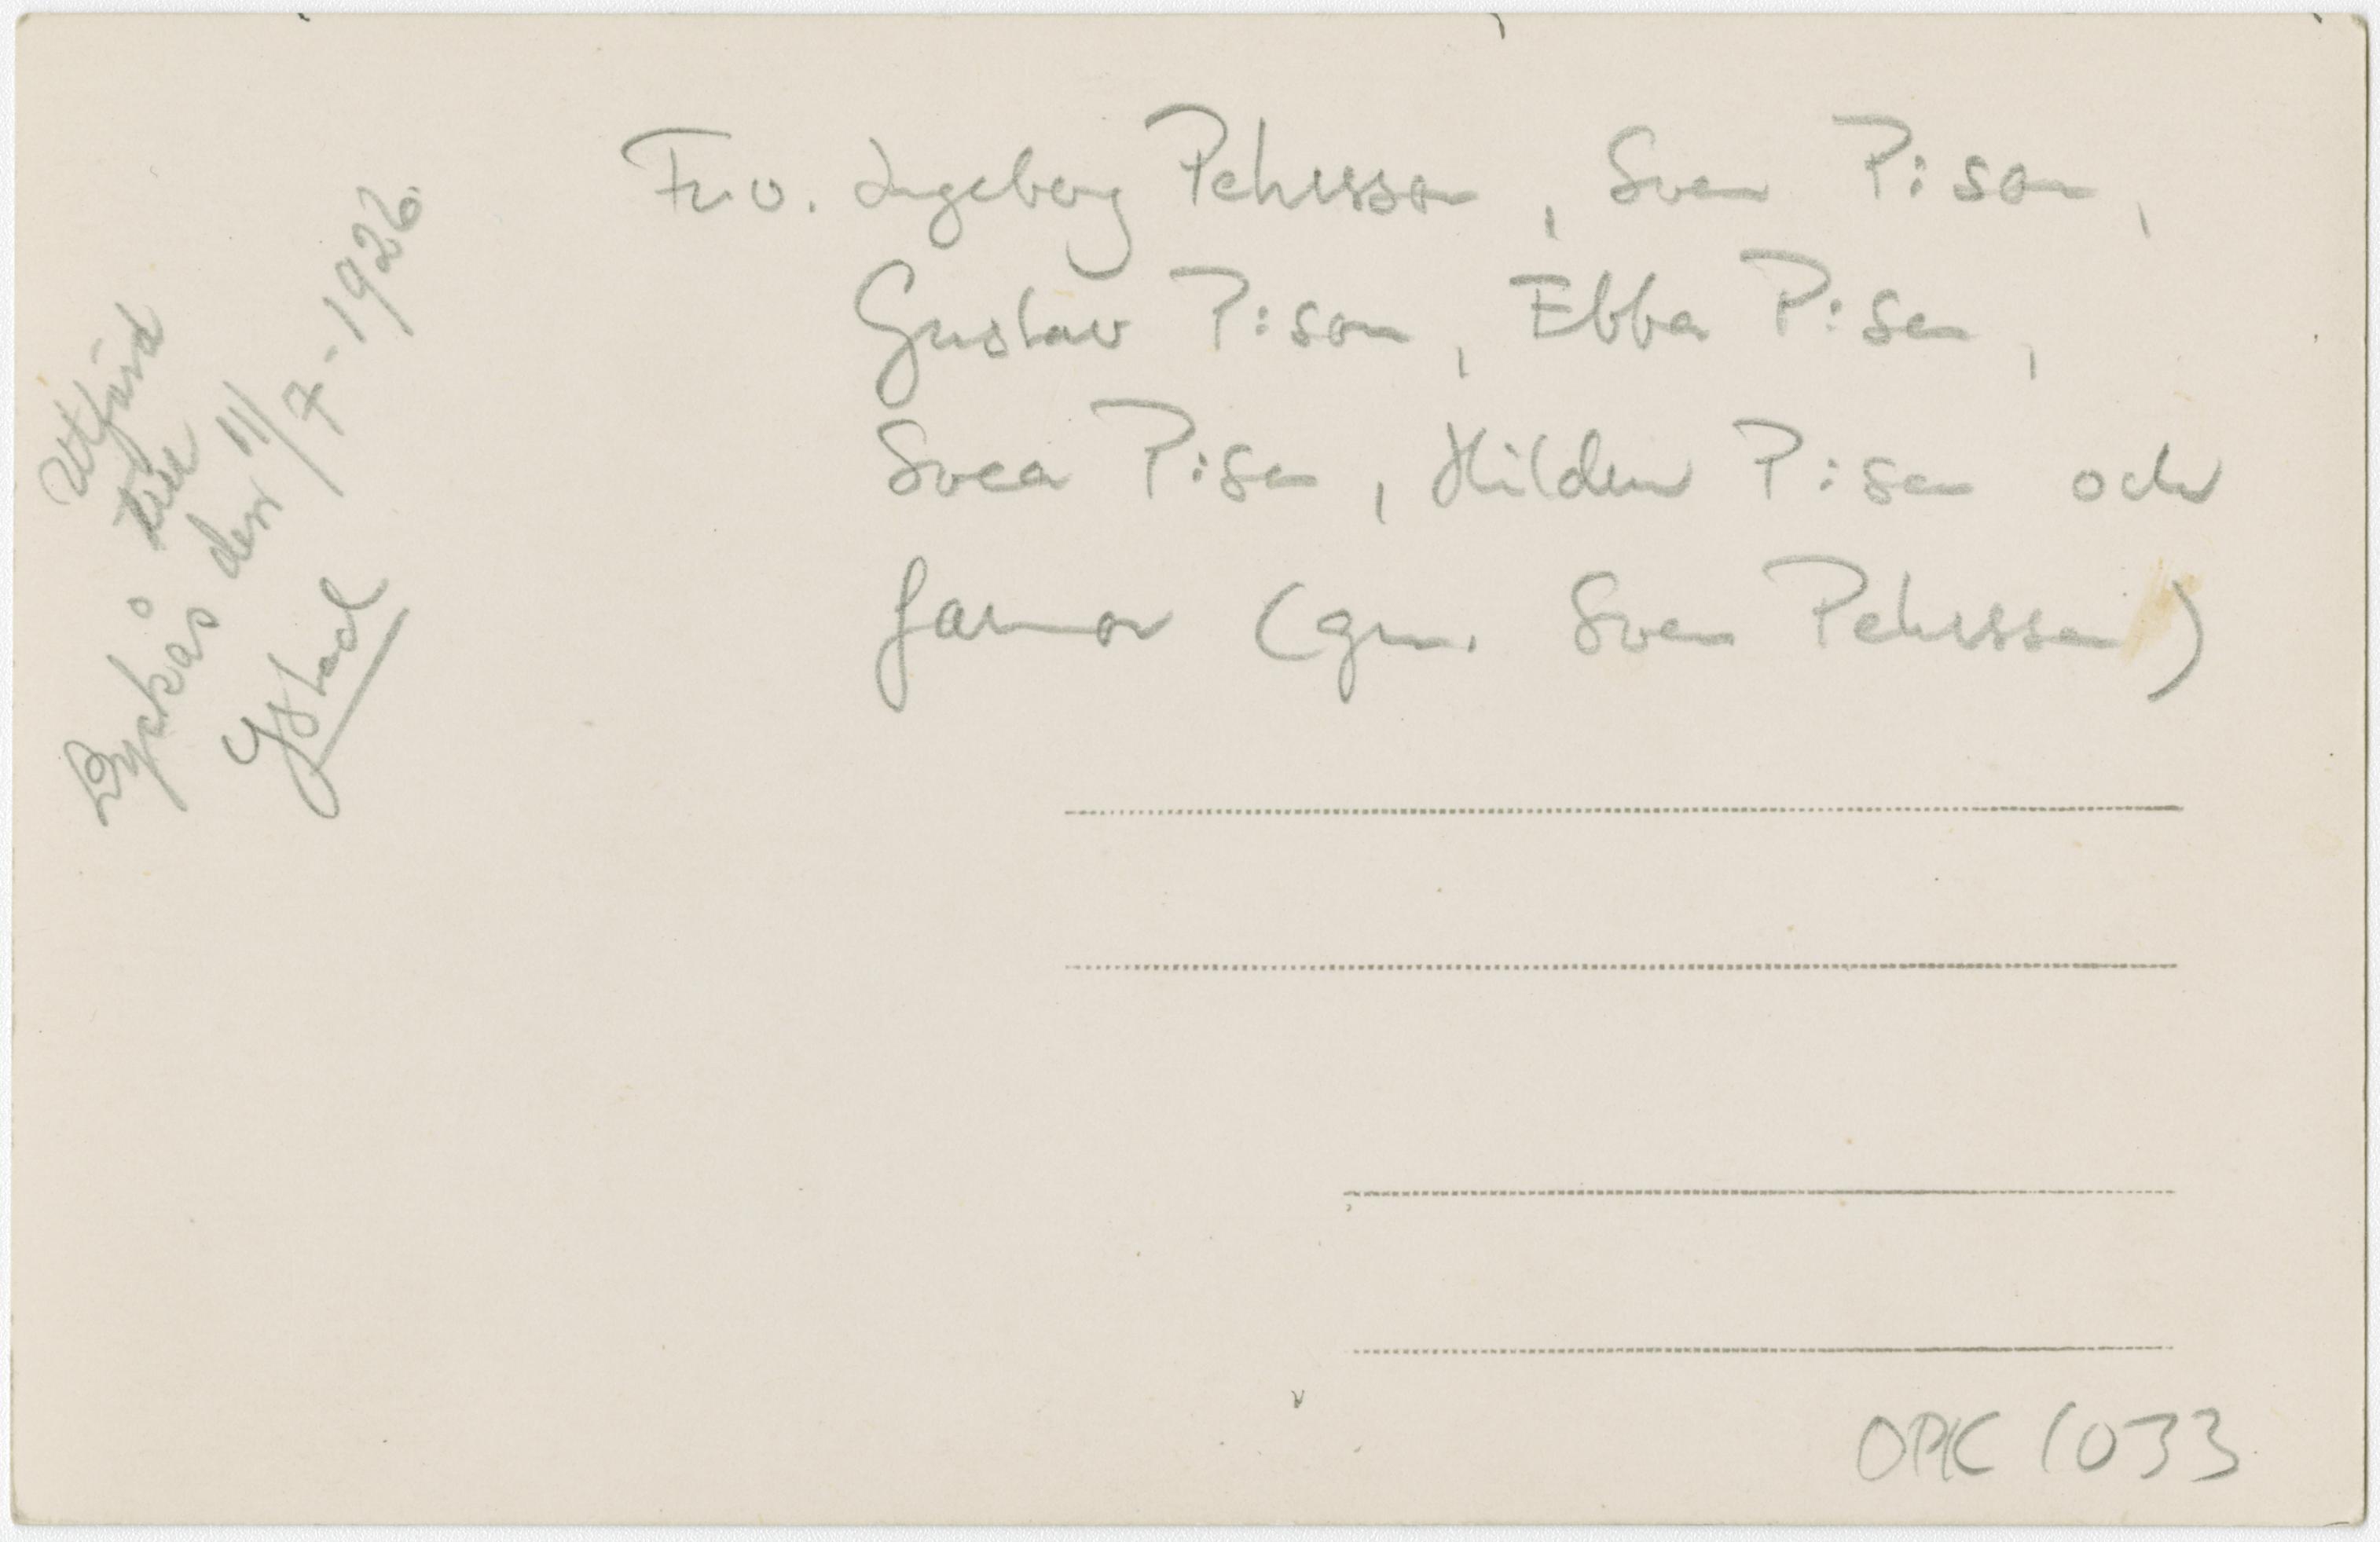 Utfärd
till
Dyckås den 11/7-1926.
Ystad
Fr. v. Ingeborg Pehrsson, Sven P:son,
Gustav P:son, Ebba P:son,
Svea P:son, Hildur P:son och
farmor (gm. Sven Pehrsson)
OPK 1033